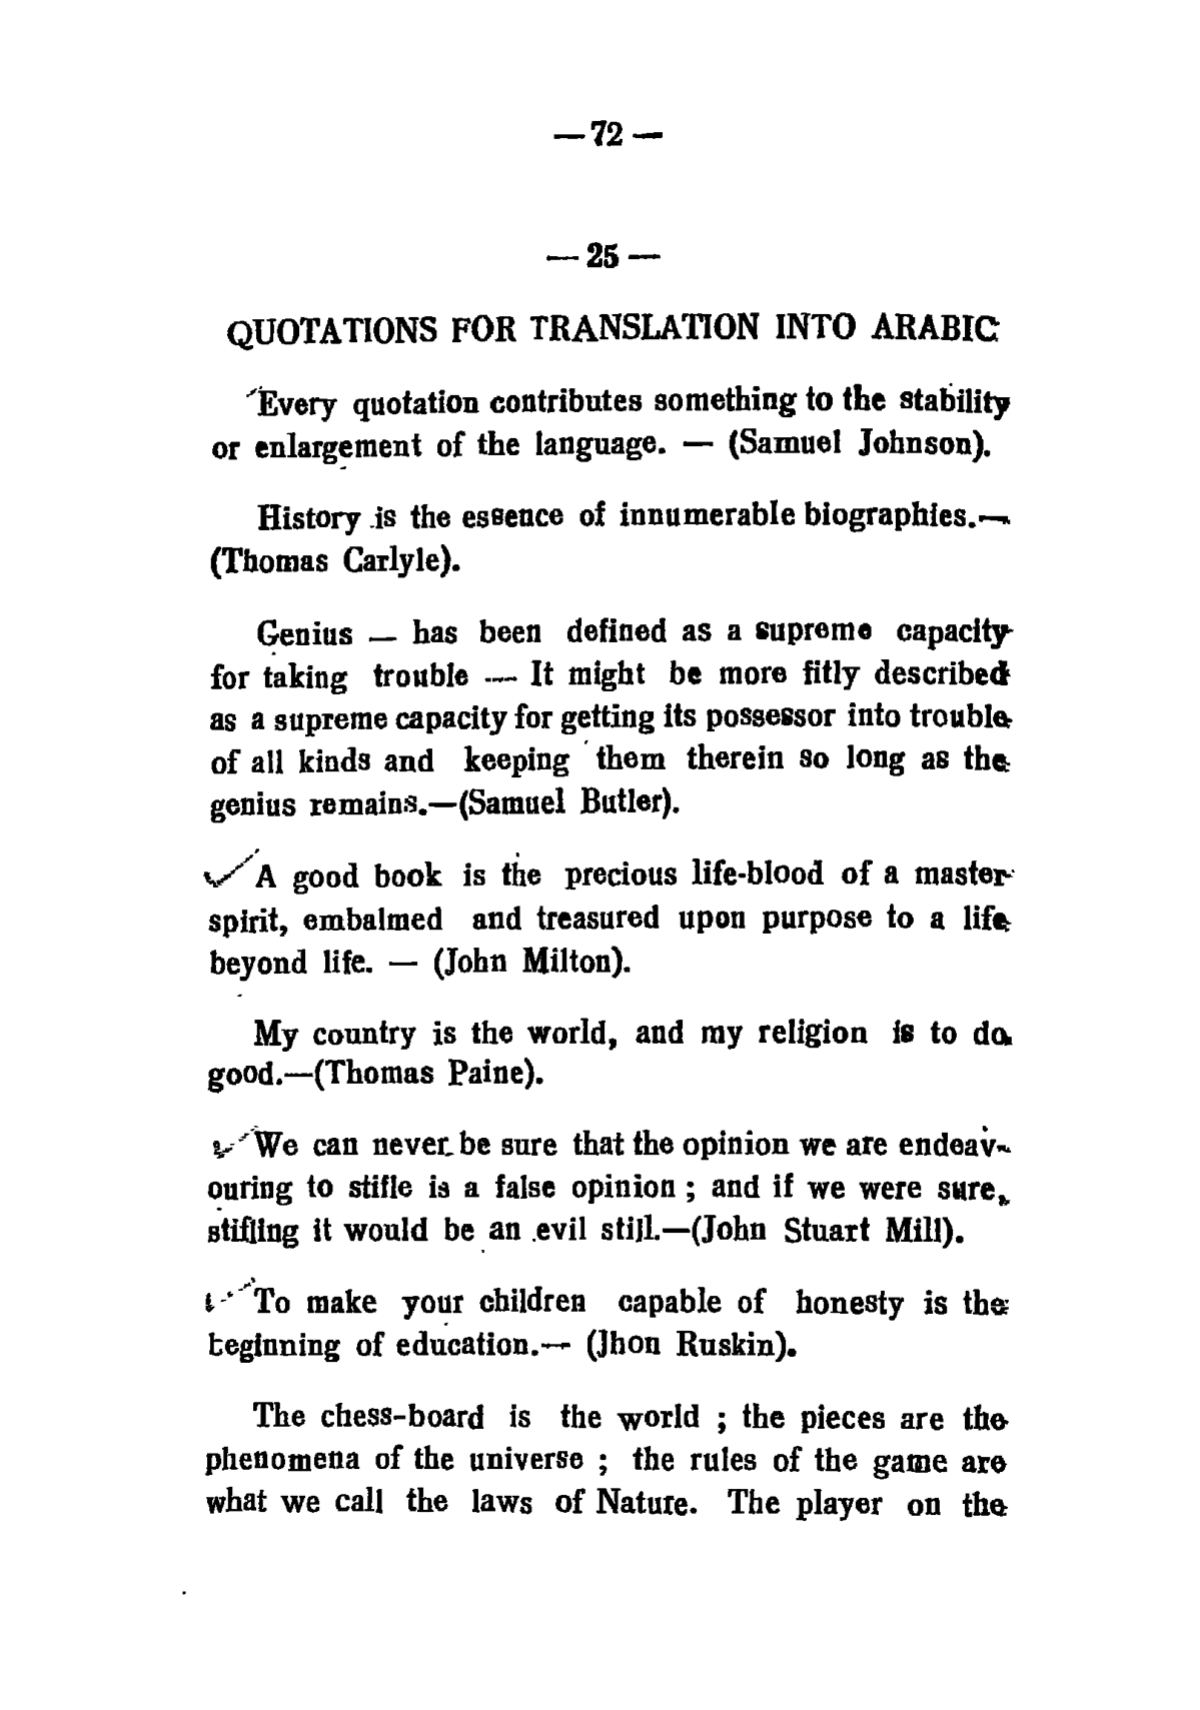 — 72 —
— 25 —
QUOTATIONS FOR TRANSLATION INTO ARABIC
Every quotation contributes something to the stability
or enlargement of the language. — (Samuel Johnson).
History is the essence of innumerable biographies.—
(Thomas Carlyle).
Genius — has been defined as a supreme capacity
for taking trouble — It might be more fitly described
as a supreme capacity for getting its possessor into trouble
of all kinds and keeping them therein so long as the
genius remains.—(Samuel Butler).
A good book is the precious life-blood of a master
spirit, embalmed and treasured upon purpose to a life
beyond life. — (John Milton).
My country is the world, and my religion is to do
good.—(Thomas Paine).
We can never be sure that the opinion we are endeav-
ouring to stifle is a false opinion ; and if we were sure,
stifling it would be an evil still.—(John Stuart Mill).
To make your children capable of honesty is the
beginning of education.— (Jhon Ruskin).
The chess-board is the world ; the pieces are the
phenomena of the universe ; the rules of the game are
what we call the laws of Nature. The player on the